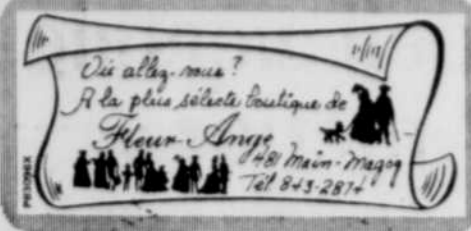 Où allez-vous?
A la plus sélecte boutique de
Fleur-Ange
481 Main-Magog
Tél. 843-2874